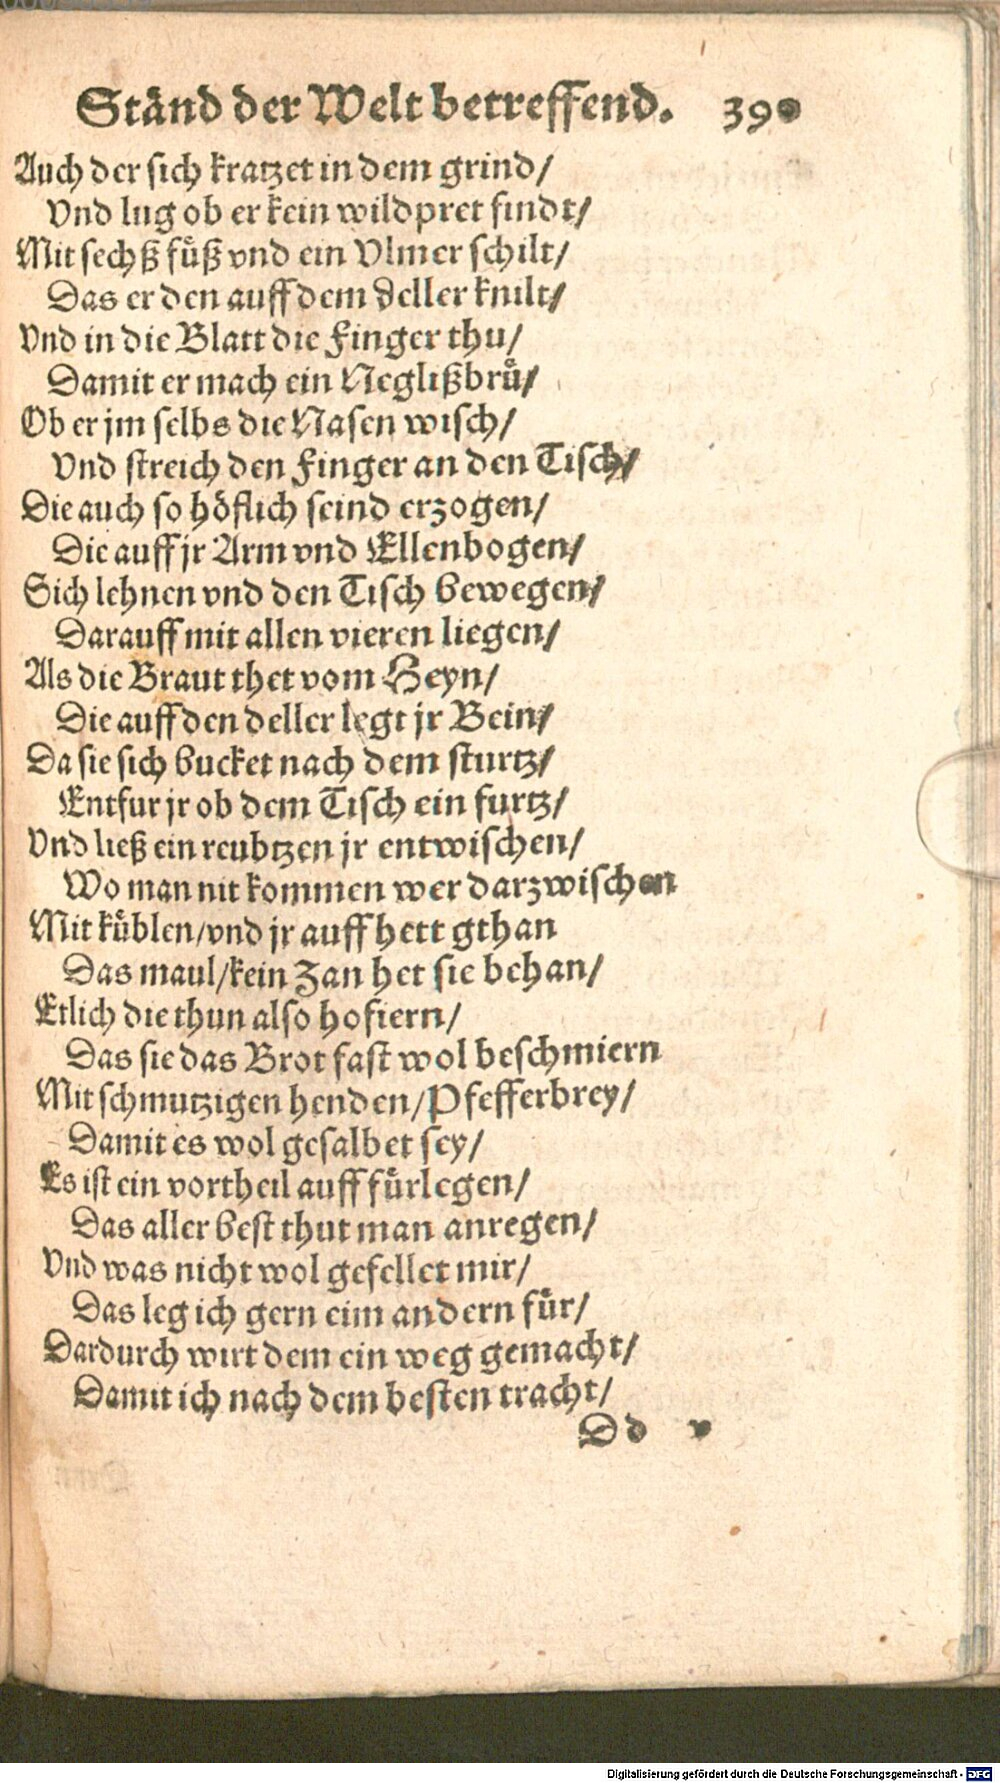 Ständ der Welt betreffend. 390
Auch der sich kratzet in dem grind/
Vnd lug ob er kein wildpret findt/
Mit sechß fuͤß vnd ein Vlmer schilt/
Das er den auff dem deller knilt/
Vnd in die Blatt die Finger thu/
Damit er mach ein Neglißbruͤ/
Ob er jm selbs die Nasen wisch/
Vnd streich den Finger an den Tisch/
Die auch so hoͤflich seind erzogen/
Die auff jr Arm vnd Ellenbogen/
Sich lehnen vnd den Tisch bewegen/
Darauff mit allen vieren liegen/
Als die Braut thet vom Heyn/
Die auff den deller legt jr Bein/
Da sie sich bucket nach dem sturtz/
Entfur jr ob dem Tisch ein furtz/
Vnd ließ ein reubtzen jr entwischen/
Wo man nit kommen wer darzwischen
Mit kuͤblen/vnd jr auff hett gthan
Das maul/kein Zan het sie behan/
Etlich die thun also hofiern/
Das sie das Brot fast wol beschmiern
Mit schmutzigen henden/Pfefferbrey/
Damit es wol gesalbet sey/
Es ist ein vortheil auff fuͤrlegen/
Das aller best thut man anregen/
Vnd was nicht wol gefellet mir/
Das leg ich gern eim andern fuͤr/
Dardurch wirt dem ein weg gemacht/
Damit ich nach dem besten tracht/
Dd v
Digitalisierung gefördert durch die Deutsche Forschungsgemeinschaft - DFG